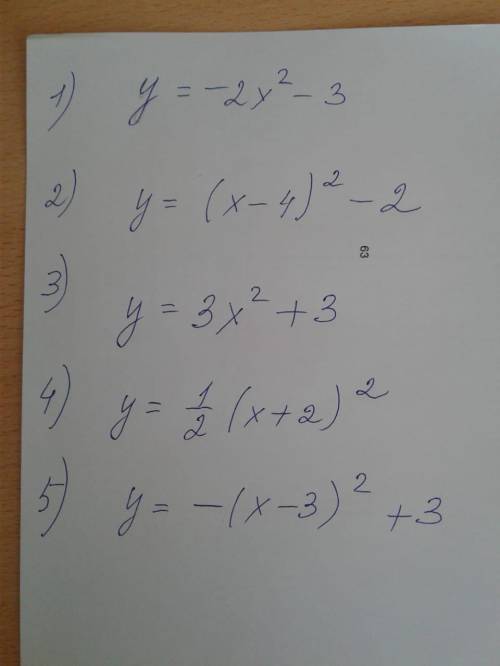 1) y = -2x² - 3
2) y = (x - 4)² - 2
63
3) y = 3x² + 3
4) y = 1/2 (x + 2)²
5) y = -(x - 3)² + 3